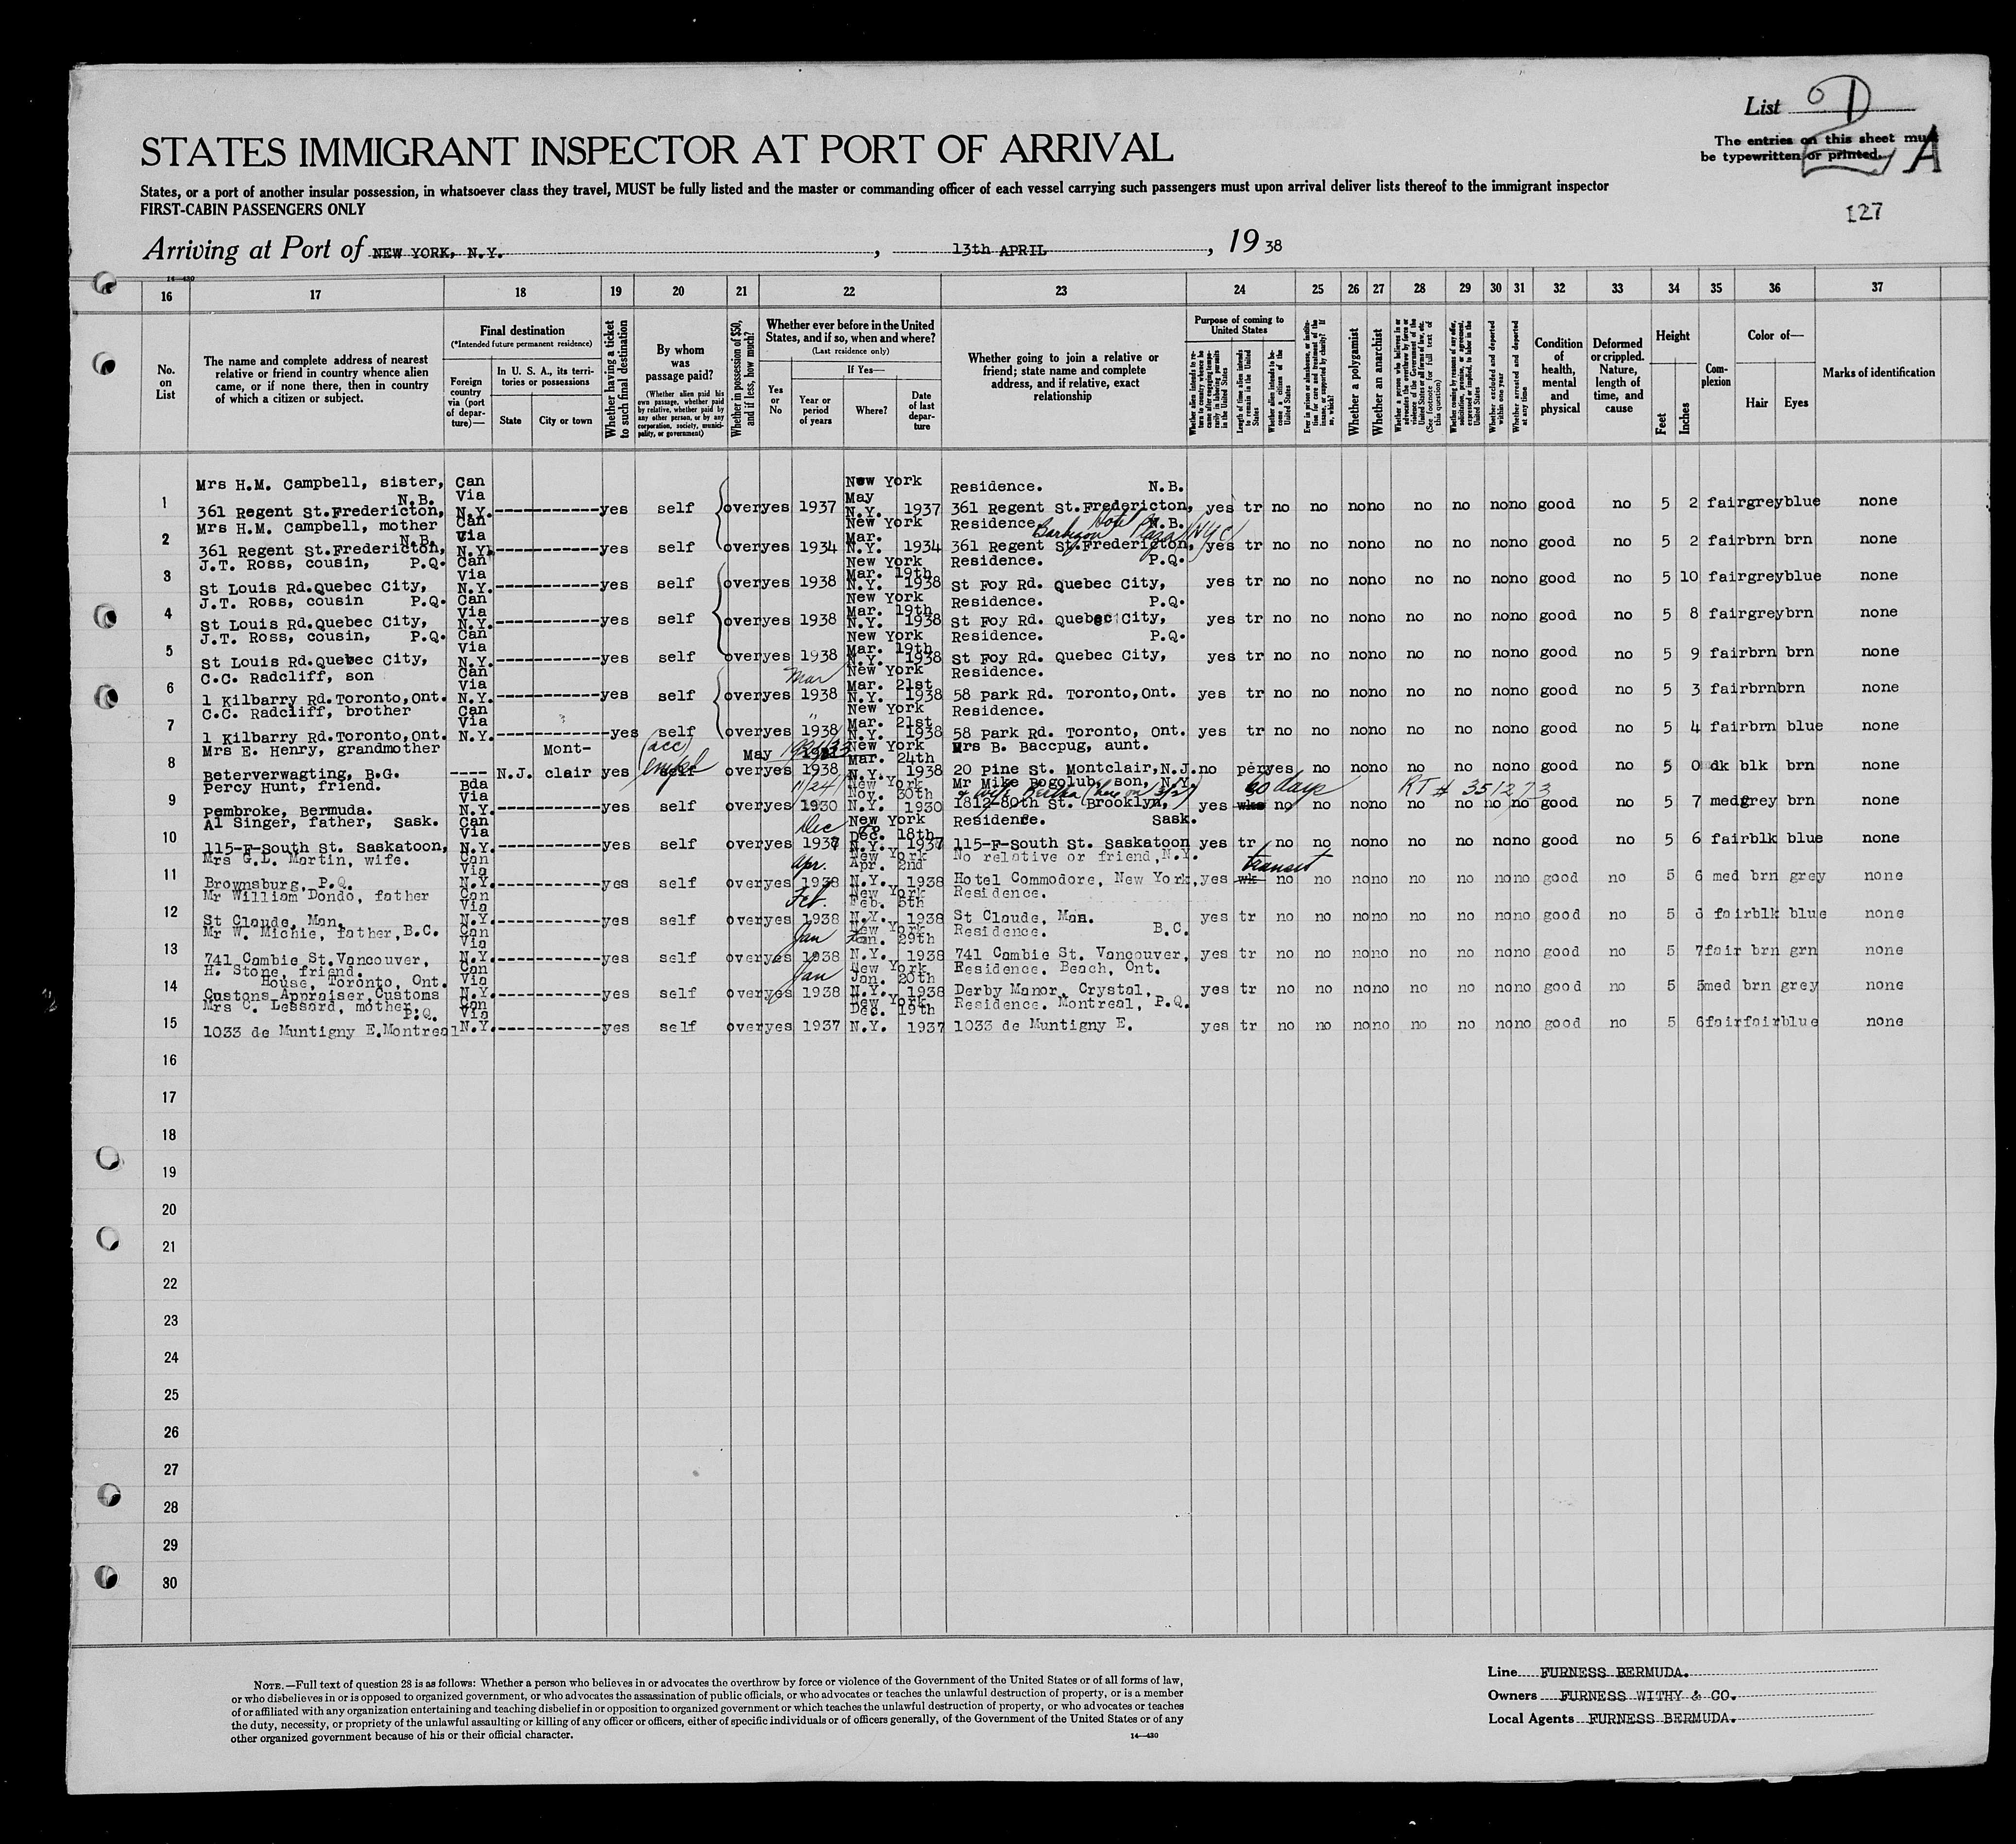 List D
The entries on this sheet must
be typewritten or printed.
A
STATES IMMIGRANT INSPECTOR AT PORT OF ARRIVAL
States, or a port of another insular possession, in whatsoever class they travel, MUST be fully listed and the master or commanding officer of each vessel carrying such passengers must upon arrival deliver lists thereof to the immigrant inspector
FIRST-CABIN PASSENGERS ONLY
127
Arriving at Port of NEW YORK, N.Y. , 13th APRIL , 19 38
14—430
16 17 18 19 20 21 22 23 24 25 26 27 28 29 30 31 32 33 34 35 36 37
No. on List
The name and complete address of nearest relative or friend in country whence alien came, or if none there, then in country of which a citizen or subject.
Final destination
(*Intended future permanent residence)
Foreign country via (port of departure)—
In U. S. A., its territories or possessions
State
City or town
Whether having a ticket to such final destination
By whom was passage paid?
(Whether alien paid his own passage, whether paid by relative, whether paid by any other person, or by any corporation, society, municipality, or government)
Whether in possession of $50, and if less, how much?
Whether ever before in the United States, and if so, when and where?
(Last residence only)
Yes or No
If Yes—
Year or period of years
Where?
Date of last departure
Whether going to join a relative or friend; state name and complete address, and if relative, exact relationship
Purpose of coming to United States
Whether alien intends to return to country whence he came after engaging temporarily in laboring pursuits in the United States
Length of time alien intends to remain in the United States
Whether alien intends to become a citizen of the United States
Ever in prison or almshouse, or institution for care and treatment of the insane, or supported by charity? If so, which?
Whether a polygamist
Whether an anarchist
Whether a person who believes in or advocates the overthrow by force or violence of the Government of the United States or all forms of law, etc. (See footnote for full text of this question)
Whether coming by reason of any offer, solicitation, promise, or agreement, expressed or implied, to labor in the United States
Whether excluded and deported within one year
Whether arrested and deported at any time
Condition of health, mental and physical
Deformed or crippled. Nature, length of time, and cause
Height
Feet
Inches
Complexion
Color of—
Hair
Eyes
Marks of identification
Mrs H.M. Campbell, sister, Can New York
N.B. Via May Residence. N.B.
1 361 Regent St.Fredericton, N.Y. ------------yes self over yes 1937 N.Y. 1937 361 Regent St.Fredericton, yes tr no no no no no no no no good no 5 2 fair grey blue none
Mrs H.M. Campbell, mother Can New York Residence. N.B.
N.B. Via Mar. Hotel Barbizon Plaza (NYC)
2 361 Regent St.Fredericton, N.Y. ------------yes self over yes 1934 N.Y. 1934 361 Regent St.Fredericton, yes tr no no no no no no no no good no 5 2 fair brn brn none
J.T. Ross, cousin, P.Q. Can New York Residence. P.Q.
Via Mar. 19th
3 St Louis Rd.Quebec City, N.Y. ------------yes self over yes 1938 N.Y. 1938 St Foy Rd. Quebec City, yes tr no no no no no no no no good no 5 10 fair grey blue none
J.T. Ross, cousin P.Q. Can New York Residence. P.Q.
Via Mar. 19th
4 St Louis Rd.Quebec City, N.Y. ------------yes self over yes 1938 N.Y. 1938 St Foy Rd. Quebec City, yes tr no no no no no no no no good no 5 8 fair grey brn none
J.T. Ross, cousin, P.Q. Can New York Residence. P.Q.
Via Mar. 19th
5 St Louis Rd.Quebec City, N.Y. ------------yes self over yes 1938 N.Y. 1938 St Foy Rd. Quebec City, yes tr no no no no no no no no good no 5 9 fair brn brn none
C.C. Radcliff, son Can Mar New York Residence.
Via Mar. 21st
6 1 Kilbarry Rd.Toronto,Ont. N.Y. ------------yes self over yes 1938 N.Y. 1938 58 Park Rd. Toronto,Ont. yes tr no no no no no no no no good no 5 3 fair brn brn none
C.C. Radcliff, brother Can " New York Residence.
Via Mar. 21st
7 1 Kilbarry Rd.Toronto,Ont. N.Y. ------------yes self over yes 1938 N.Y. 1938 58 Park Rd. Toronto, Ont. yes tr no no no no no no no no good no 5 4 fair brn blue none
Mrs E. Henry, grandmother Mont- (acc) May New York Mrs B. Baccpug, aunt.
Mar. 24th
8 Beterverwagting, B.G. ---- N.J. clair yes self over yes 1938 N.Y. 1938 20 Pine St. Montclair,N.J. no per yes no no no no no no no good no 5 0 dk blk brn none
Percy Hunt, friend. Bda 11/24/ New York Mr Mike Bogolub, son, N.Y. 60 days RT # 351273
Via Nov. 30th
9 Pembroke, Bermuda. N.Y. ------------yes self over yes 1930 N.Y. 1930 1812-80th St. Brooklyn, yes wks no no no no no no no no good no 5 7 med grey brn none
Al Singer, father, Sask. Can Dec New York Residence. Sask.
Via Dec. 18th
10 115-F-South St. Saskatoon, N.Y. ------------yes self over yes 1937 N.Y. 1937 115-F-South St. Saskatoon yes tr no no no no no no no no good no 5 6 fair blk blue none
Mrs G.L. Martin, wife. Can Apr. New York No relative or friend,N.Y. transit
Via Apr. 2nd
11 Brownsburg, P.Q. N.Y. ------------yes self over yes 1938 N.Y. 1938 Hotel Commodore, New York, yes wk no no no no no no no no good no 5 6 med brn grey none
Mr William Dondo, father Can Feb. New York Residence.
Via Feb. 5th
12 St Claude, Man. N.Y. ------------yes self over yes 1938 N.Y. 1938 St Claude, Man. yes tr no no no no no no no no good no 5 fair blk blue none
Mr W. Michie, father,B.C. Can Jan New York Residence. B.C.
Via Jan. 29th
13 741 Cambie St.Vancouver, N.Y. ------------yes self over yes 1938 N.Y. 1938 741 Cambie St. Vancouver, yes tr no no no no no no no no good no 5 7 fair brn grn none
H. Stone, friend. Can Jan New York Residence. Beach, Ont.
House, Toronto, Ont. Via Jan. 20th
14 Customs Appraiser,Customs N.Y. ------------yes self over yes 1938 N.Y. 1938 Derby Manor, Crystal, yes tr no no no no no no no no good no 5 5 med brn grey none
Mrs C. Lessard, mother, Can New York Residence. Montreal, P.Q.
P.Q. Via Dec. 19th
15 1033 de Muntigny E.Montreal N.Y. ------------yes self over yes 1937 N.Y. 1937 1033 de Muntigny E. yes tr no no no no no no no no good no 5 6 fair fair blue none
16
17
18
19
20
21
22
23
24
25
26
27
28
29
30
NOTE.—Full text of question 28 is as follows: Whether a person who believes in or advocates the overthrow by force or violence of the Government of the United States or of all forms of law,
or who disbelieves in or is opposed to organized government, or who advocates the assassination of public officials, or who advocates or teaches the unlawful destruction of property, or is a member
of or affiliated with any organization entertaining and teaching disbelief in or opposition to organized government or which teaches the unlawful destruction of property, or who advocates or teaches
the duty, necessity, or propriety of the unlawful assaulting or killing of any officer or officers, either of specific individuals or of officers generally, of the Government of the United States or of any
other organized government because of his or their official character.
14—430
Line FURNESS BERMUDA.
Owners FURNESS WITHY & CO.
Local Agents FURNESS BERMUDA.